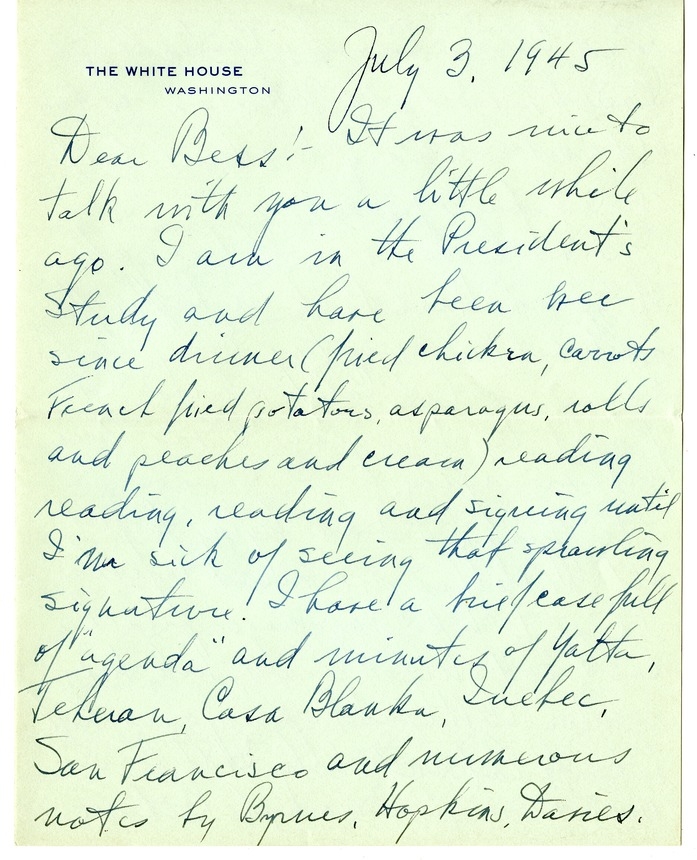 THE WHITE HOUSE
WASHINGTON
July 3, 1945
Dear Bess:- It was nice to
talk with you a little while
ago. I am in the President's
Study and have been here
since dinner (fried chicken, carrots
French fried potatoes, asparagus, rolls
and peaches and cream) reading
reading, reading and signing until
I'm sick of seeing that sprawling
signature. I have a brief case full
of "agenda" and minutes of Yalta,
Teheran, Casa Blanka, Quebec,
San Francisco and numerous
notes by Byrnes, Hopkins, Davies.